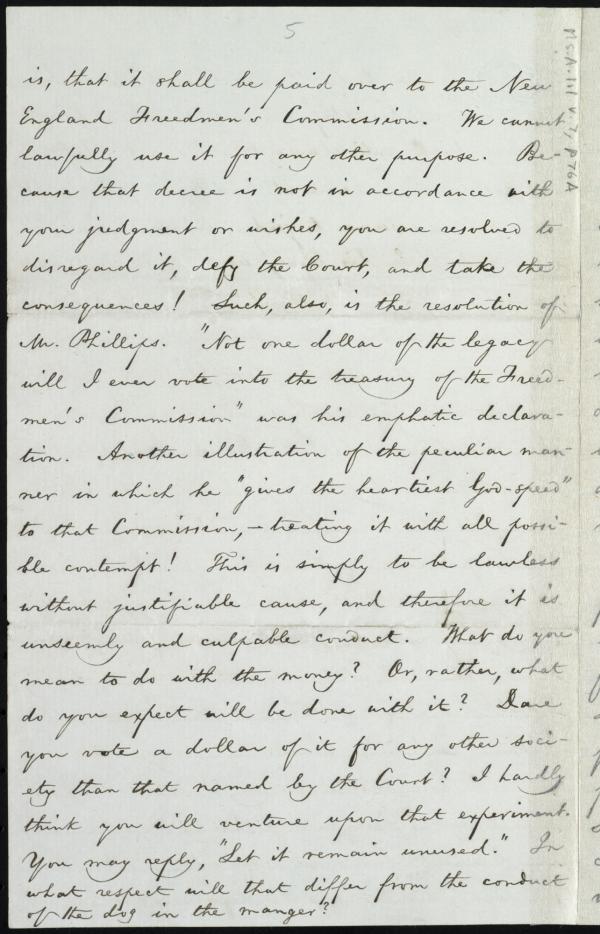 5
Ms.A.1.1 v.7, p.76A
is, that it shall be paid over to the New
England Freedmen's Commission. We cannot
lawfully use it for any other purpose. Be-
cause that decree is not in accordance with
your judgment or wishes, you are resolved to
disregard it, defy the Court, and take the
consequences! Such, also, is the resolution of
Mr. Phillips. "Not one dollar of the legacy
will I ever vote into the treasury of the Freed-
men's Commission" was his emphatic declara-
tion. Another illustration of the peculiar man-
ner in which he "gives the heartiest God-speed"
to that Commission,—treating it with all possi-
ble contempt! This is simply to be lawless
without justifiable cause, and therefore it is
unseemly and culpable conduct. What do you
mean to do with the money? Or, rather, what
do you expect will be done with it? Dare
you vote a dollar of it for any other soci-
ety than that named by the Court? I hardly
think you will venture upon that experiment.
You may reply, "Let it remain unused." In
what respect will that differ from the conduct
of the dog in the manger?